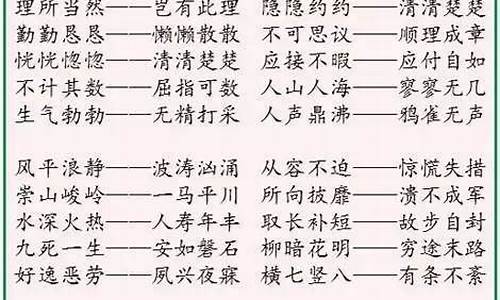 理所当然——岂有此理 隐隐约约——清清楚楚
勤勤恳恳——懒懒散散 不可思议——顺理成章
恍恍惚惚——清清楚楚 应接不暇——应付自如
不计其数——屈指可数 人山人海——寥寥无几
生气勃勃——无精打采 人声鼎沸——鸦雀无声
风平浪静——波涛汹涌 从容不迫——惊慌失措
崇山峻岭——一马平川 所向披靡——溃不成军
水深火热——人寿年丰 取长补短——故步自封
九死一生——安如磐石 柳暗花明——穷途末路
好逸恶劳——夙兴夜寐 横七竖八——有条不紊